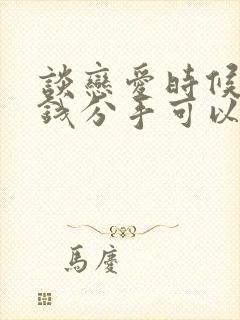 談戀愛時候
錢分手可以
馬慶